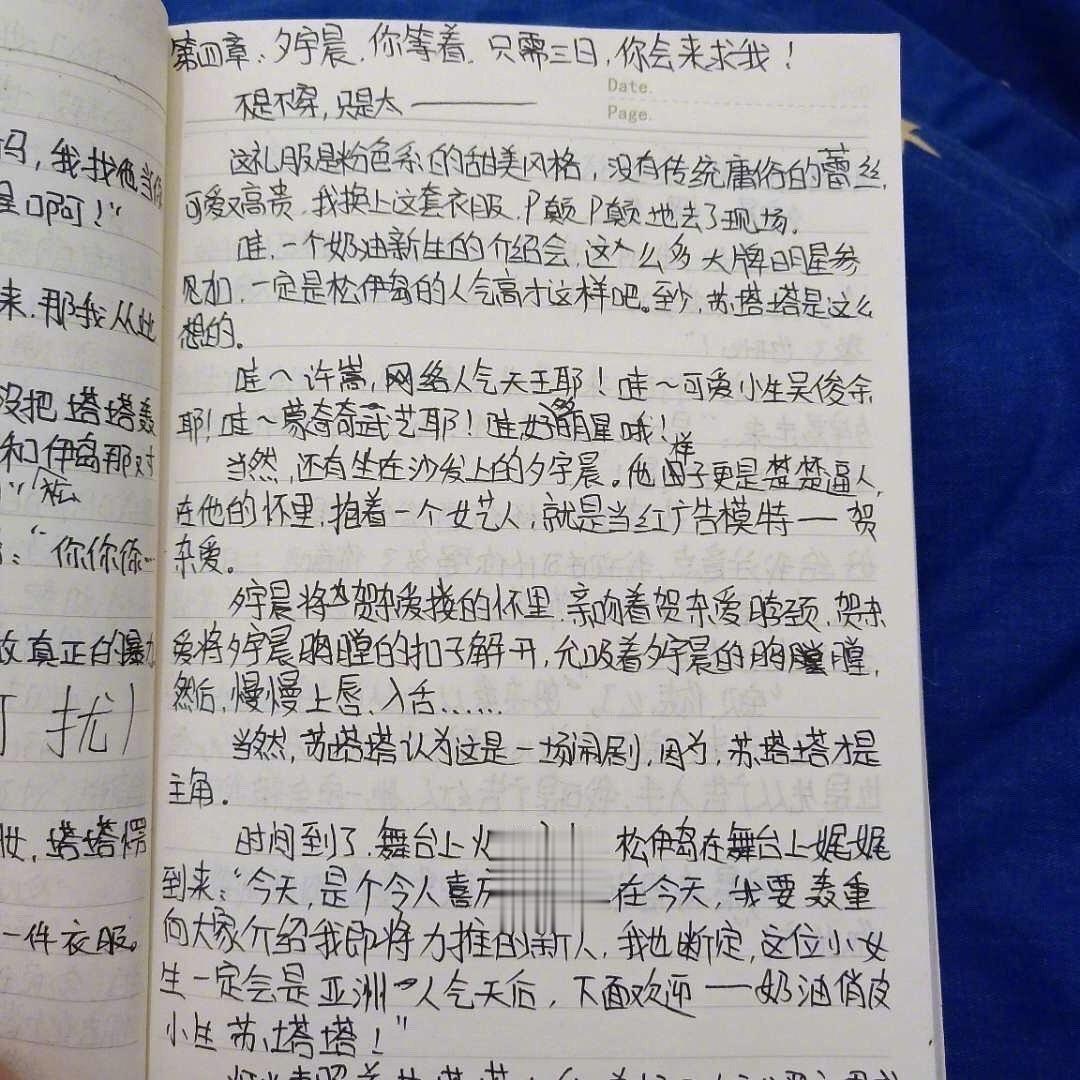 吗，我找他当你
星啊！"
来，那我从此
没把塔塔轰
和伊岛那对
"松
："你你你…
故真正的暴力
打扰！
妆，塔塔愣
一件衣服。
第四章：夕宇晨，你等着，只需三日，你会来求我！
Date.
Page.
不是不穿，只是太————
这礼服是粉色系的甜美风格，没有传统庸俗的蕾丝，
可爱又高贵，我换上这套衣服，P颠P颠地去了现场。
哇，一个奶油新生的介绍会，这个么多大牌明星参
见加，一定是松伊岛的人气高才这样吧。至少，苏塔塔是这么
想的。
哇～许嵩，网络人气天王耶！哇～可爱小生吴俊余
耶！哇～蒙奇奇武艺耶！哇，好多明星哦！
当然，还有坐在沙发上的夕宇晨。他样子更是楚楚逼人，
在他的怀里，抱着一个女艺人，就是当红广告模特——贺
东爱。
夕宇晨将贺东爱搂的怀里，亲吻着贺东爱脖颈，贺东
爱将夕宇晨胸膛的扣子解开，允吸着夕宇晨的胸膛，
然后，慢慢上唇、入舌……
当然，苏塔塔认为这是一场闹剧，因为，苏塔塔才是
主角。
时间到了，舞台上火 松伊岛在舞台上娓娓
到来："今天，是个令人喜庆 在今天，我要轰重
向大家介绍我即将力推的新人，我也断定，这位小女
生一定会是亚洲一人气天后，下面欢迎——奶油俏皮
小生苏塔塔！"